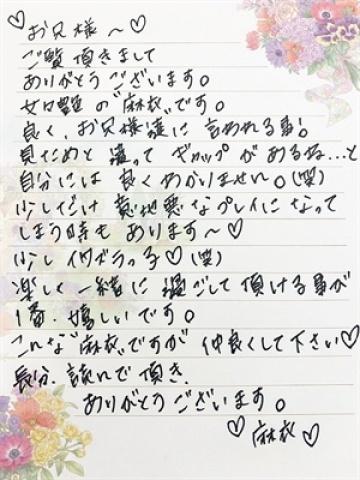 ♡お兄様～♡
ご覧頂きまして
ありがとうございます。
女囗艶の"麻衣"です。
良く、お兄様達に言われる事!
見ためと違ってギャップがあるね…と
自分には良くわかりません。(笑)
少しだけ意地悪なプレイになって
しまう時もあります～♡
少しイタズラっ子♡(笑)
楽しく一緒に過ごして頂ける事が
1番.嬉しいです。
こんな"麻衣"ですが仲良くして下さい♡
長分.読んで頂き.
ありがとうございます。
♡麻衣♡